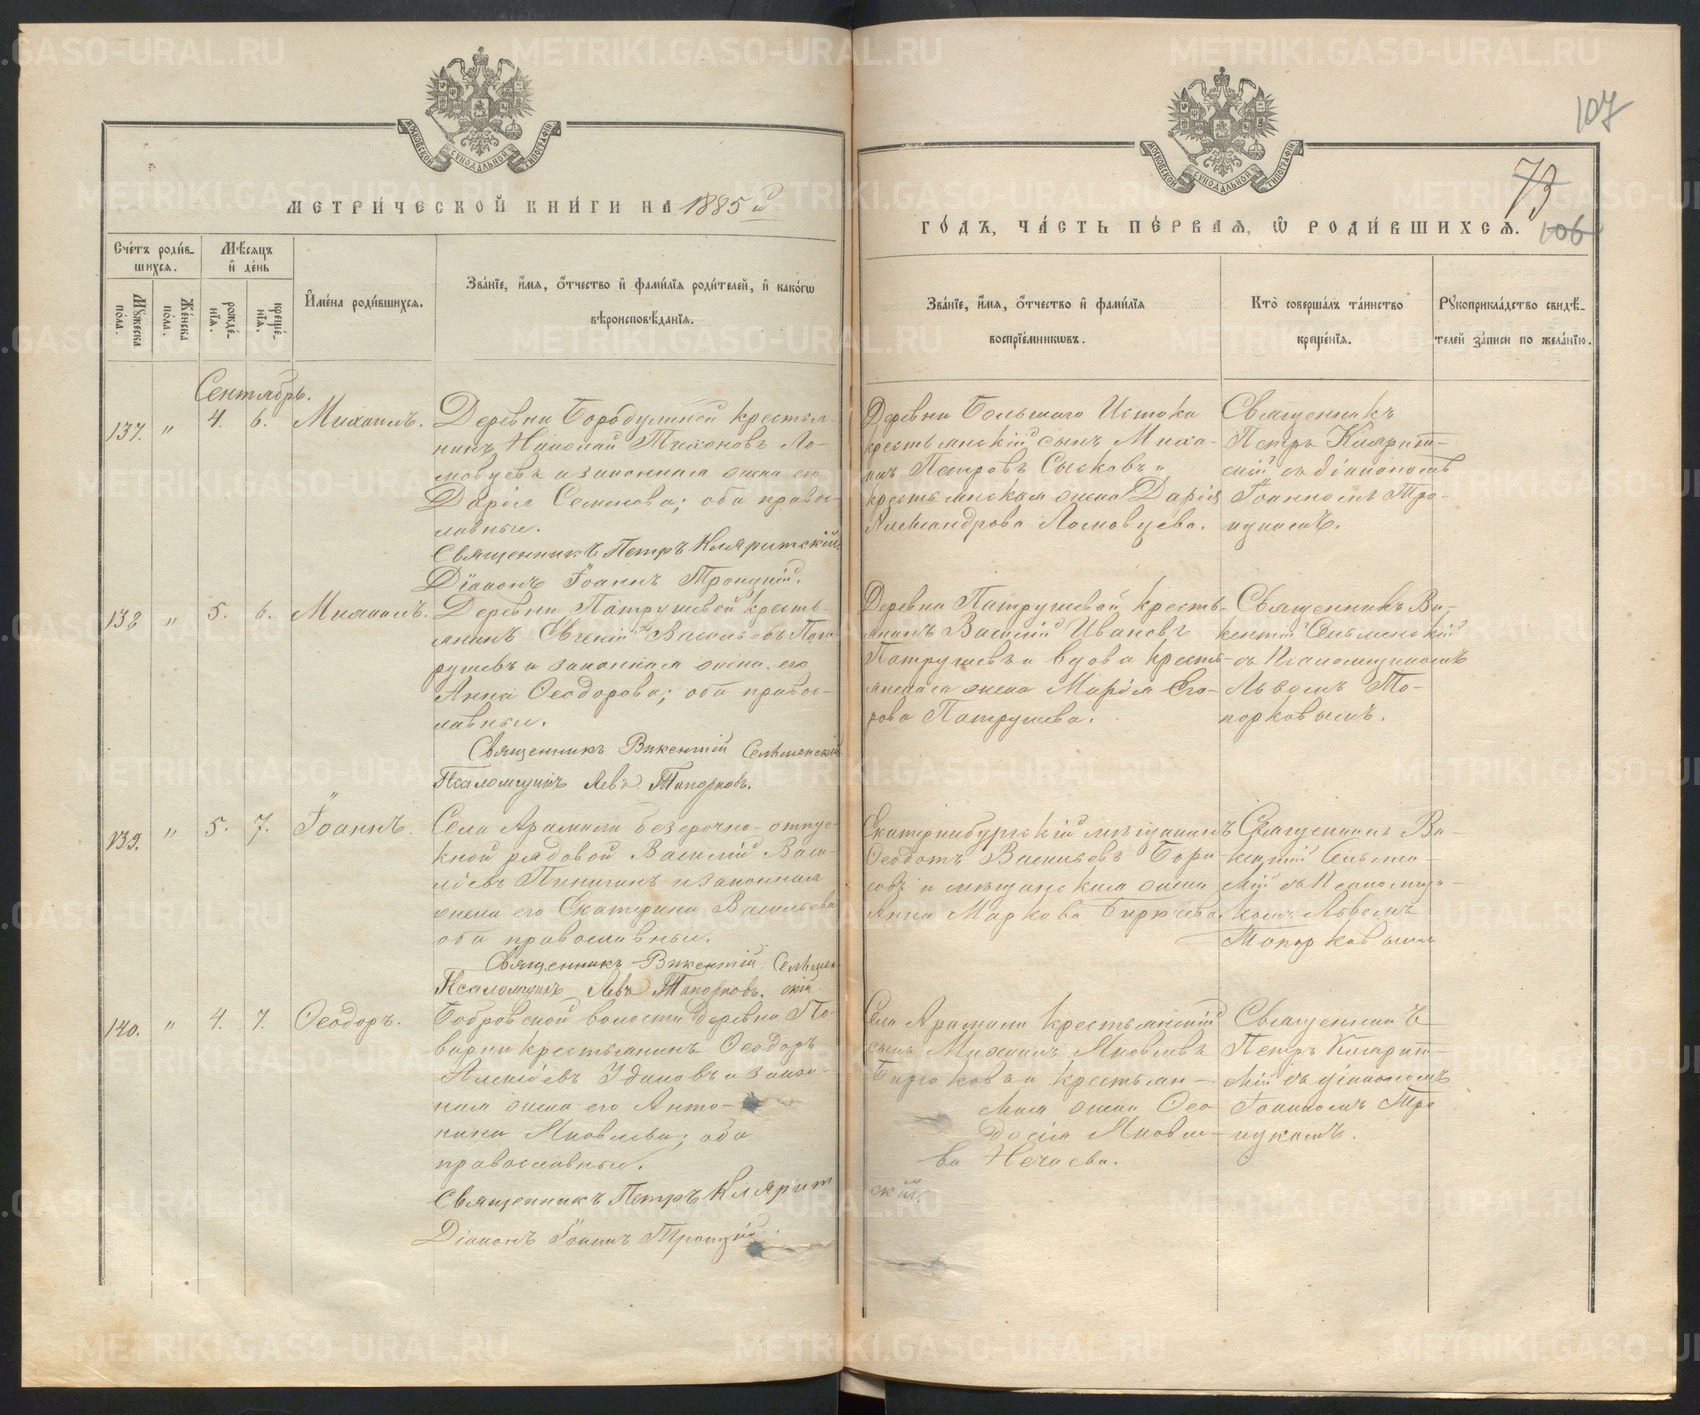 107
73
106
МОСКОВСКОЙ СѴНОДАЛЬНОЙ ТИПОГРАФІИ
МОСКОВСКОЙ СѴНОДАЛЬНОЙ ТИПОГРАФІИ
МЕТРИ́ЧЕСКОЙ КНИ́ГИ НА 1885й
ГО́ДЪ, ЧА́СТЬ ПЕ́РВАѦ, Ѡ҆ РОДИ́ВШИХСѦ.
Сче́тъ роди́в-
шихсѧ.
Мѣ́сѧцъ
и҆ де́нь
Мꙋжеска по́ла.
Же́нска по́ла.
рожде́-
нїѧ.
креще́-
нїѧ.
И҆мена̀ роди́вшихсѧ.
Зва́нїе, и҆́мѧ, ѻ҆́тчество и҆ фами́лїѧ роди́телей, и҆ како́гѡ
вѣроисповѣ́данїѧ.
Зва́нїе, и҆́мѧ, ѻ҆́тчество и҆ фами́лїѧ
воспрїе́мникѡвъ.
Кто̀ соверша́лъ та́инство
креще́нїѧ.
Рꙋкоприкла́дство свидѣ́-
телей за́писи по жела́нїю.
Сентябрь.
137. " 4. 6. Михаилъ.
Деревни Бородулиной крестья-
нинъ Николай Тихоновъ Ло-
мовцевъ и законная жена его
Дарія Семенова; оба правос-
лавные.
Священникъ Петръ Кляритскій
Діаконъ Іоаннъ Троицкій.
Деревни Большаго Истока
крестьянскій сынъ Миха-
илъ Петровъ Сысковъ и
крестьянская жена Дарія
Александрова Ломовцева.
Священникъ
ПетръКлярит-
скій съ діакономъ
Іоанномъ Тро-
ицкимъ.
138 " 5. 6. Михаилъ.
Деревни Патрушевой кресть-
янинъ Евгеній Васильевъ Пат-
рушевъ и законная жена его
Анна Ѳеодорова; оба правос-
лавные.
Священникъ Викентій Сельменскій
Псаломщикъ Левъ Топорковъ.
Деревни Патрушевой кресть-
янинъ Василій Ивановъ
Патрушевъ и вдова кресть-
янская жена Марія Его-
рова Патрушева.
Священникъ Ви-
кентій Сельменскій
съ Псаломщикомъ
Львомъ То-
порковымъ.
139. " 5. 7. Іоаннъ.
Села Арамили безсрочно-отпус-
кной рядовой Василій Васи-
льевъ Пинигинъ и законная
жена его Екатерина Васильева
оба православные.
Священникъ Викентій Сельмен-
скій.
Псаломщикъ Левъ Топорковъ.
Екатеринбургскій мѣщанинъ
Ѳеодотъ Васильевъ Бори-
совъ и мѣщанская жена
Анна Маркова Бирючева
Священникъ Ви-
кентій Сельмен-
скій съ Псаломщи-
комъ Львомъ
Топорковымъ
140. " 4. 7. Ѳеодоръ.
Бобровской волости деревни По-
варни крестьянинъ Ѳеодоръ
Алексіевъ и закон-
ная жена его Анто-
нина Яковлева; оба
православные.
Священникъ Петръ Клярит
скій
Діаконъ Іоаннъ Троицкій.
Села Арамили крестьянскій
сынъ Михаилъ Яковлевъ
Бирюковъ и крестьян-
ская жена Ѳео-
досія Яковле-
ва Нечаева.
Священникъ
Петръ Клярит-
скій съ діакономъ
Іоанномъ Тро
ицкимъ.
METRIKI.GASO-URAL.RU